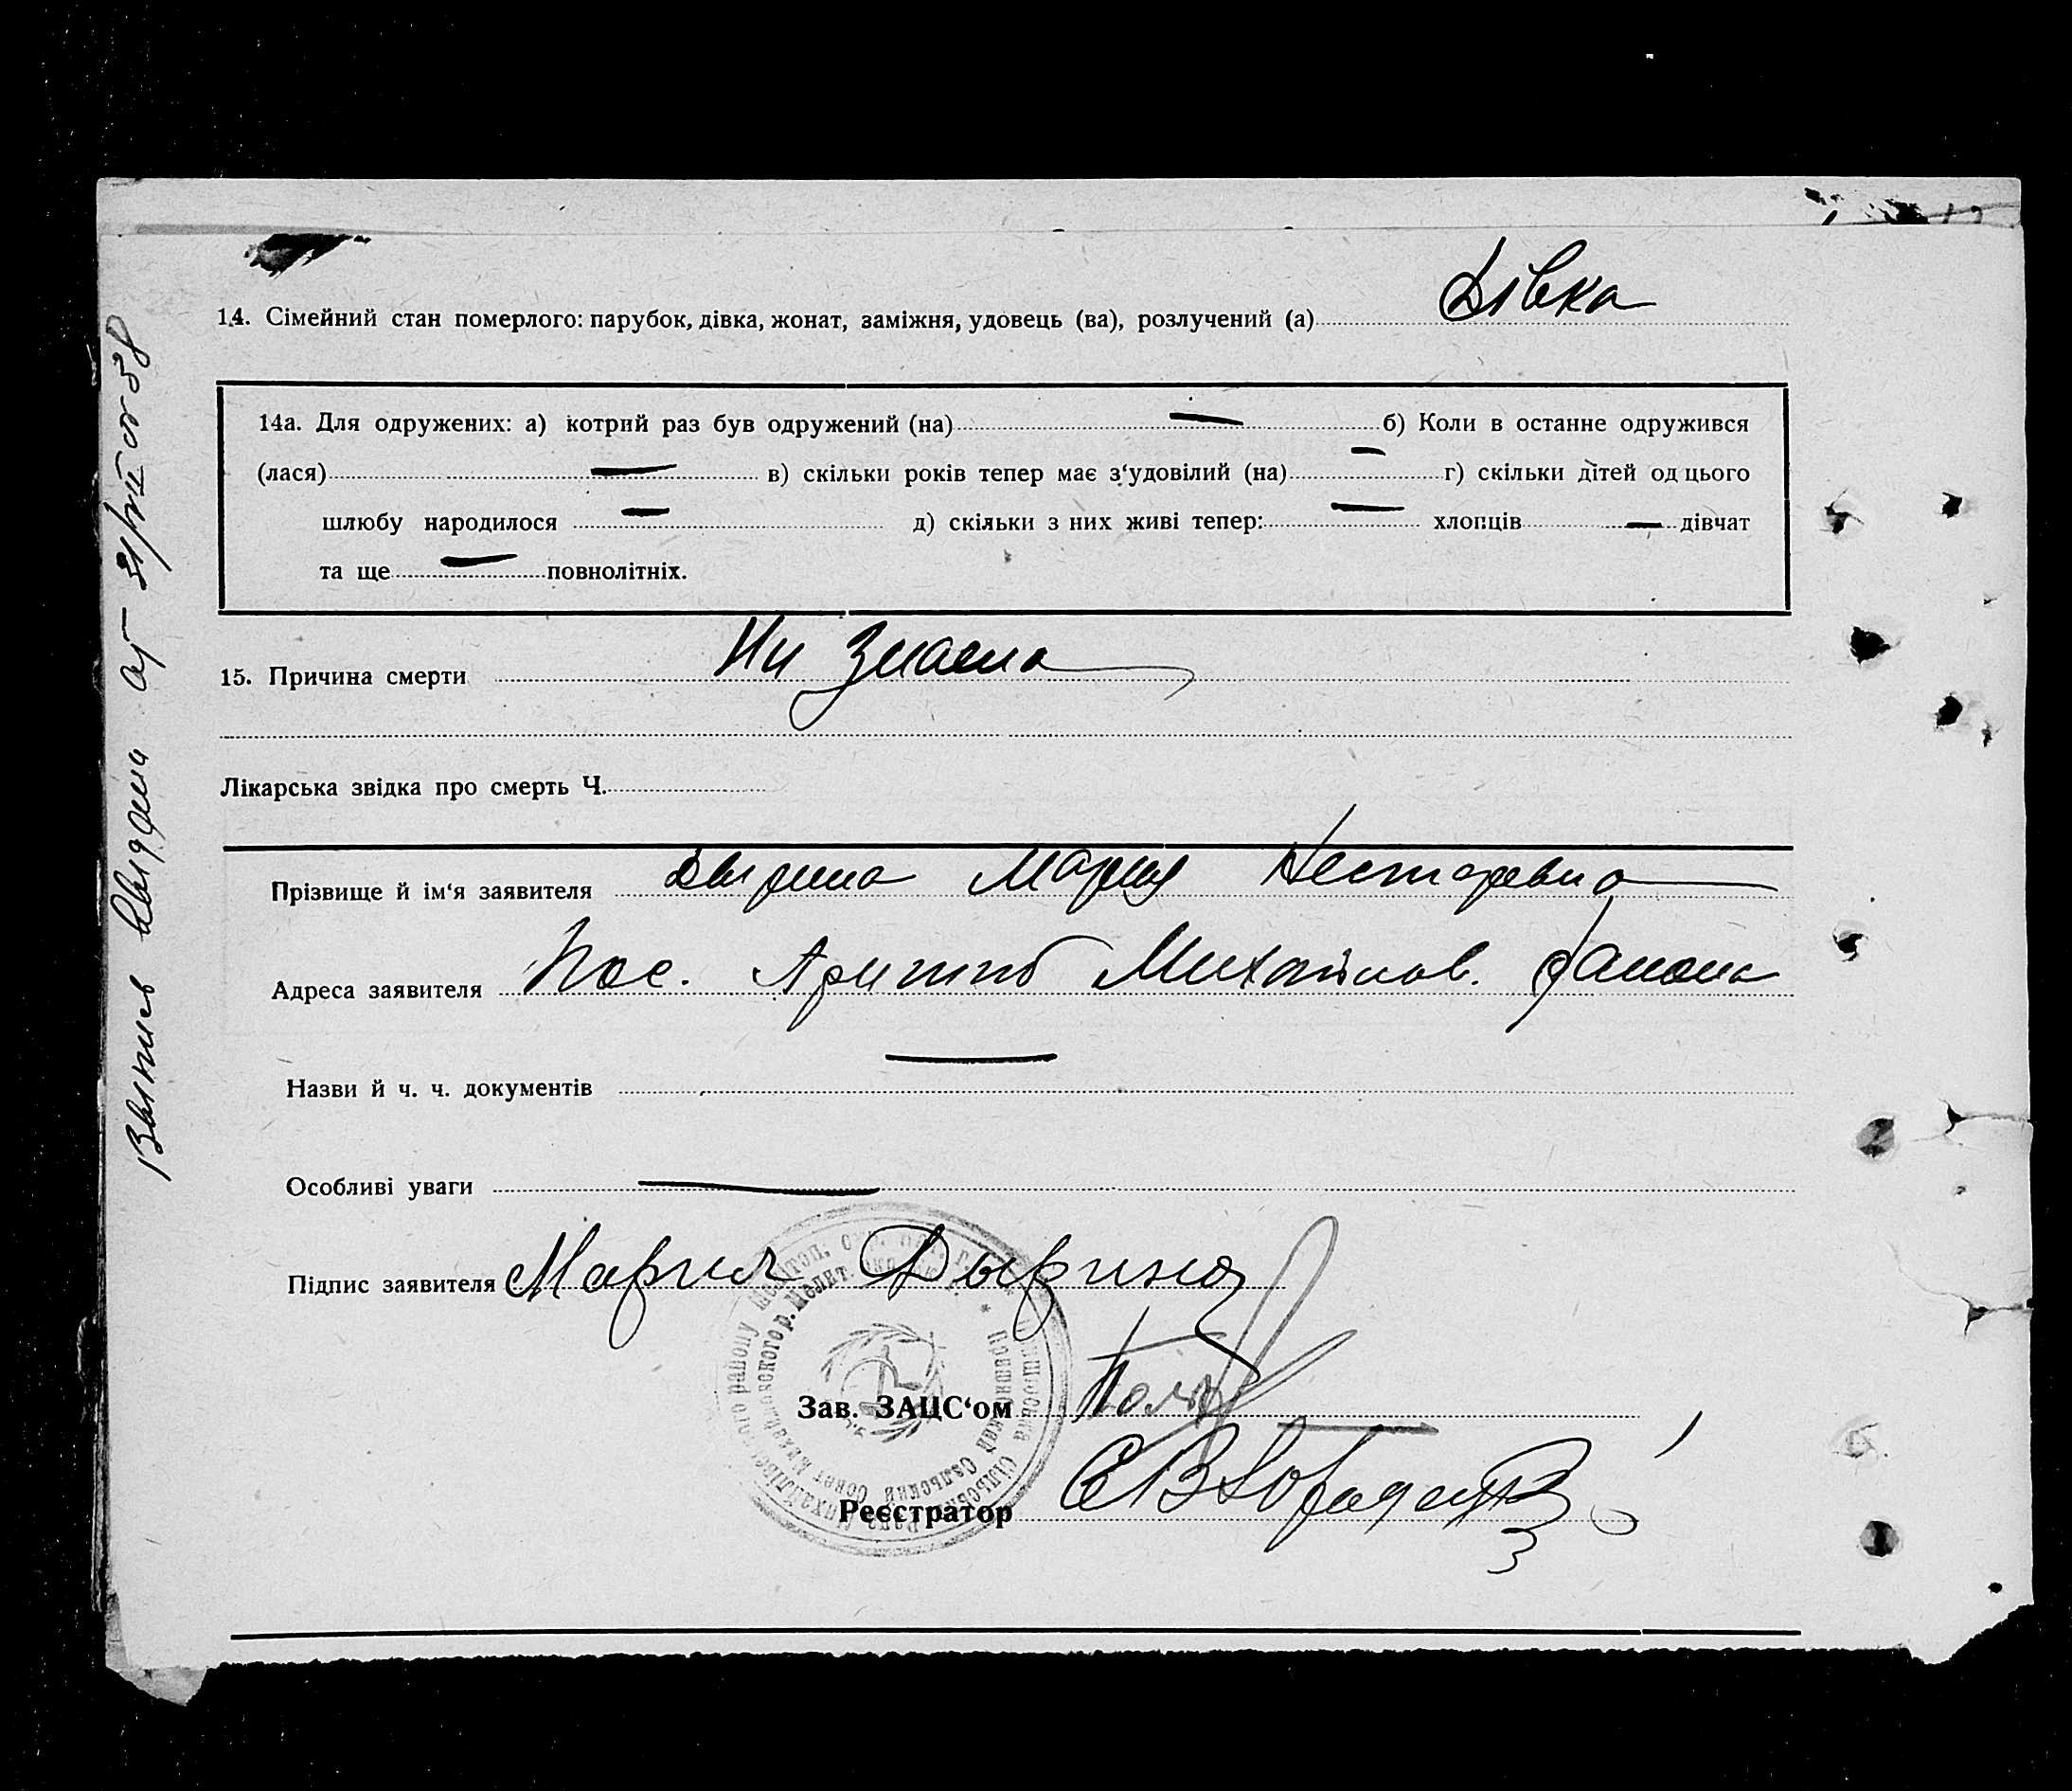 14. Сімейний стан померлого: парубок, дівка, жонат, заміжня, удовець (ва), розлучений (а) Дівка
14а. Для одружених: а) котрий раз був одружений (на) — б) Коли в останне одружився
(лася) — в) скільки років тепер має з‘удовілий (на) — г) скільки дітей од цього
шлюбу народилося — д) скільки з них живі тепер: — хлопців — дівчат
та ще — повнолітніх.
15. Причина смерти Ни
Лікарська звідка про смерть Ч.
Прізвище й ім‘я заявителя Дырина Мария Несторевна
Адреса заявителя Пос. Михайлов. району
Назви й ч. ч. документів —
Особливі уваги —
Підпис заявителя Мария Дырина
Зав. ЗАЦС‘ом
Реєстратор
Выпись выдана от 31/VII 38